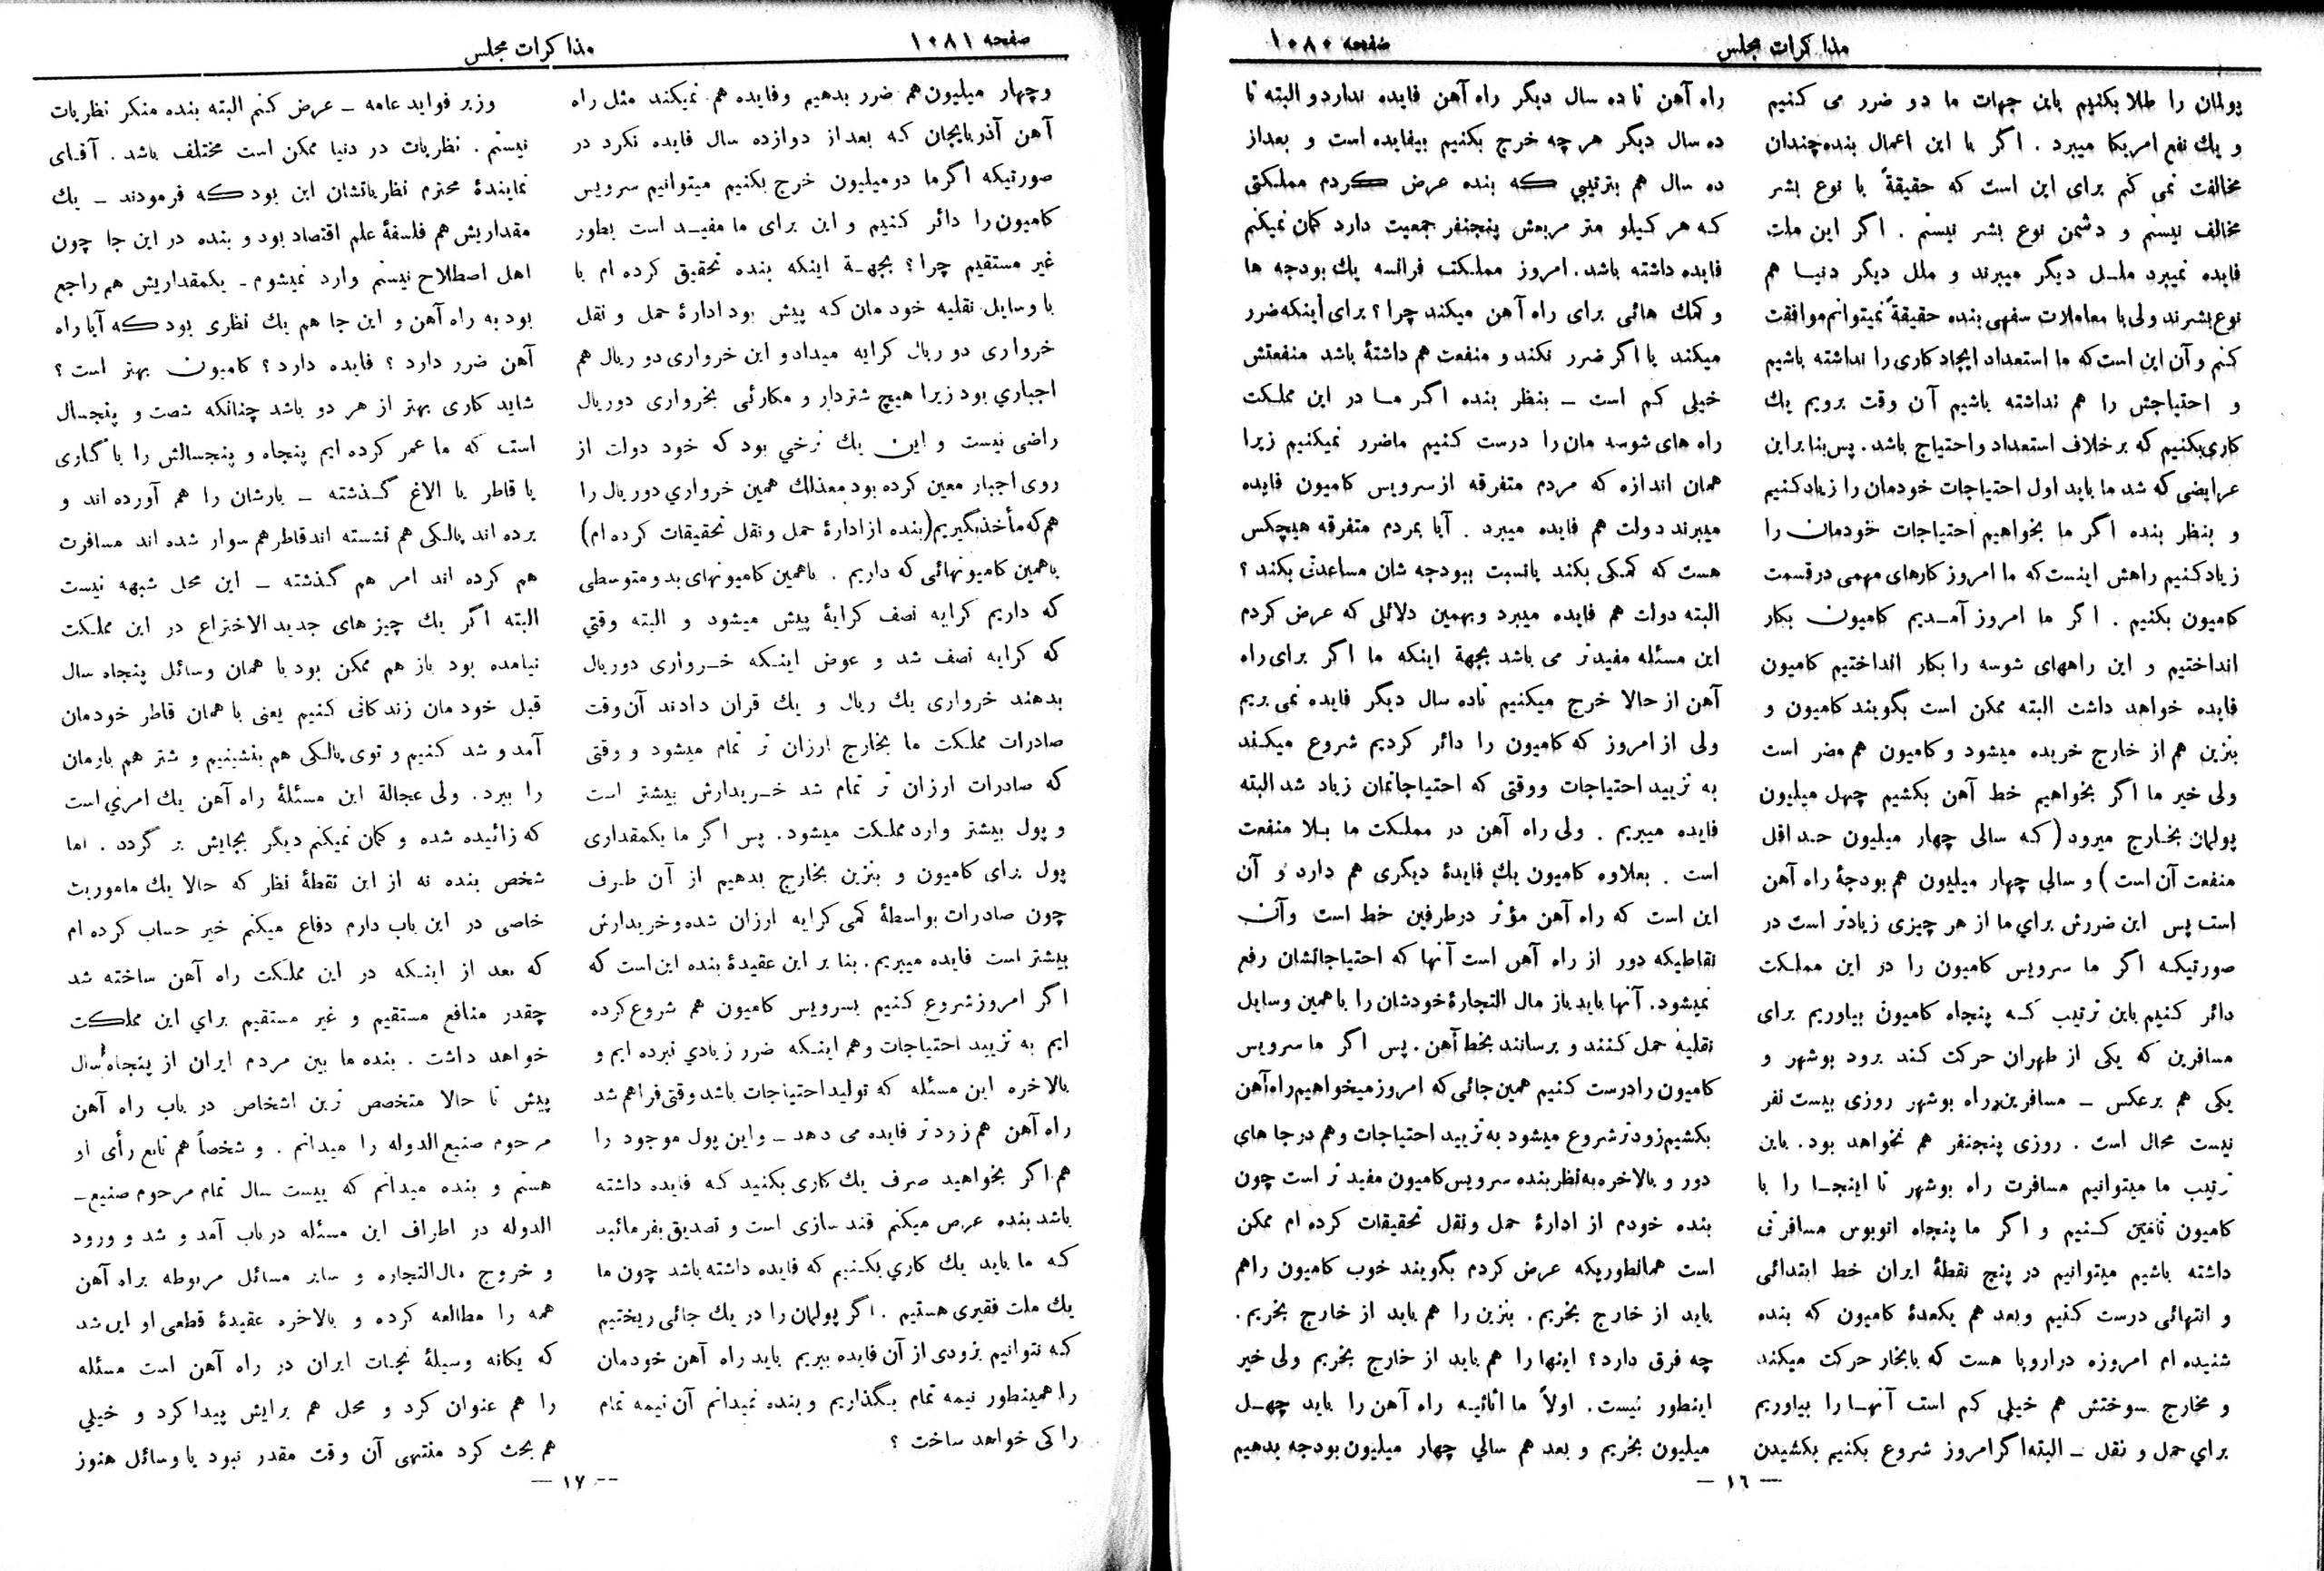 صفحه ۱۰۸۰
مذاکرات مجلس
پولمان را طلا بکنیم باین جهات ما دو ضرر می کنیم
و یك نفع امریکا میبرد . اگر با این اعمال بنده چندان
مخالفت نمی کنم برای این است که حقیقةً با نوع بشر
مخالف نیستم و دشمن نوع بشر نیستم . اگر این ملت
فایده نمیبرد ملل دیگر میبرند و ملل دیگر دنیا هم
نوع بشرند ولی با معاملات سفهی بنده حقیقةً نمیتوانم موافقت
کنم و آن این است که ما استعداد ایجاد کاری را نداشته باشیم
و احتیاجش را هم نداشته باشیم آن وقت برویم یك
کاری بکنیم که بر خلاف استعداد و احتیاج باشد . پس بنابراین
عرایضی که شد ما باید اول احتیاجات خودمان را زیاد کنیم
و بنظر بنده اگر ما بخواهیم احتیاجات خودمان را
زیاد کنیم راهش اینست که ما امروز کارهای مهمی در قسمت
کامیون بکنیم . اگر ما امروز آمدیم کامیون بکار
انداختیم و این راههای شوسه را بکار انداختیم کامیون
فایده خواهد داشت البته ممکن است بگویند کامیون و
بنزین هم از خارج خریده میشود و کامیون هم مضر است
ولی خیر ما اگر بخواهیم خط آهن بکشیم چهل میلیون
پولمان بخارج میرود ( که سالی چهار میلیون حد اقل
منفعت آن است ) و سالی چهار میلیون هم بودجهٔ راه آهن
است پس این ضررش برای ما از هر چیزی زیادتر است در
صورتیکه اگر ما سرویس کامیون را در این مملکت
دائر کنیم باین ترتیب که پنجاه کامیون بیاوریم برای
مسافرین که یکی از طهران حرکت کند برود بوشهر و
یکی هم برعکس ــ مسافرین راه بوشهر روزی بیست نفر
نیست محال است . روزی پنجنفر هم نخواهد بود . باین
ترتیب ما میتوانیم مسافرت راه بوشهر تا اینجا را با
کامیون تأمین کنیم و اگر ما پنجاه اتوبوس مسافرتی
داشته باشیم میتوانیم در پنج نقطهٔ ایران خط ابتدائی
و انتهائی درست کنیم وبعد هم یکعدهٔ کامیون که بنده
شنیده ام امروزه در اروپا هست که بابخار حرکت میکند
و مخارج سوختش هم خیلی کم است آنها را بیاوریم
برای حمل و نقل ــ البته اگر امروز شروع بکنیم بکشیدن
راه آهن تا ده سال دیگر راه آهن فایده ندارد و البته تا
ده سال دیگر هر چه خرج بکنیم بیفایده است و بعد از
ده سال هم بترتیبی که بنده عرض کردم مملکتی
که هر کیلو متر مربعش پنجنفر جمعیت دارد گمان نمیکنم
فایده داشته باشد . امروز مملکت فرانسه یك بودجه ها
و کمك هائی برای راه آهن میکند چرا ؟ برای اینکه ضرر
میکند یا اگر ضرر نکند و منفعت هم داشتهٔ باشد منفعتش
خیلی کم است ــ بنظر بنده اگر ما در این مملکت
راه های شوسه مان را درست کنیم ماضرر نمیکنیم زیرا
همان اندازه که مردم متفرقه از سرویس کامیون فایده
میبرند دولت هم فایده میبرد . آیا بمردم متفرقه هیچکس
هست که کمکی بکند یا نسبت ببودجه شان مساعدتی بکند ؟
البته دولت هم فایده میبرد وبهمین دلائلی که عرض کردم
این مسئله مفیدتر می باشد بجهة اینکه ما اگر برای راه
آهن از حالا خرج میکنیم تاده سال دیگر فایده نمی بریم
ولی از امروز که کامیون را دائر کردیم شروع میکند
به تزیید احتیاجات ووقتی که احتیاجاتمان زیاد شد البته
فایده میبریم . ولی راه آهن در مملکت ما بلا منفعت
است . بعلاوه کامیون یك فایدهٔ دیگری هم دارد و آن
این است که راه آهن مؤثر در طرفین خط است وآن
نقاطیکه دور از راه آهن است آنها که احتیاجاتشان رفع
نمیشود . آنها باید باز مال التجارهٔ خودشان را با همین وسایل
نقلیه حمل کنند و برسانند بخط آهن . پس اگر ما سرویس
کامیون را درست کنیم همین جائی که امروز میخواهیم راه آهن
بکشیم زودتر شروع میشود به تزیید احتیاجات وهم در جاهای
دور و بالاخره به نظر بنده سرویس کامیون مفید تر است چون
بنده خودم از ادارهٔ حمل ونقل تحقیقات کرده ام ممکن
است همانطوریکه عرض کردم بگویند خوب کامیون راهم
باید از خارج بخریم . بنزین را هم باید از خارج بخریم .
چه فرق دارد ؟ اینها را هم باید از خارج بخریم ولی خیر
اینطور نیست . اولاً ما اثاثیه راه آهن را باید چهل
میلیون بخریم و بعد هم سالی چهار میلیون بودجه بدهیم
ــ ١٦ ــ
صفحه ۱۰۸۱
مذاکرات مجلس
وچهار میلیون هم ضرر بدهیم وفایده هم نمیکند مثل راه
آهن آذربایجان که بعد از دوازده سال فایده نکرد در
صورتیکه اگر ما دو میلیون خرج بکنیم میتوانیم سرویس
کامیون را دائر کنیم و این برای ما مفید است بطور
غیر مستقیم چرا ؟ بجهة اینکه بنده تحقیق کرده ام با
با وسایل نقلیه خودمان که پیش بود ادارهٔ حمل و نقل
خرواری دو ریال کرایه میداد و این خرواری دو ریال هم
اجباری بود زیرا هیچ شتردار و مکارئی بخرواری دوریال
راضی نیست و این یك نرخی بود که خود دولت از
روی اجبار معین کرده بود معذلك همین خرواری دوریال را
هم که مأخذ بگیریم (بنده از ادارهٔ حمل و نقل تحقیقات کرده ام)
باهمین کامیونهائی که داریم . باهمین کامیونهای بد و متوسطی
که داریم کرایه نصف کرایهٔ پیش میشود و البته وقتی
که کرایه نصف شد و عوض اینکه خرواری دوریال
بدهند خرواری یك ریال و یك قران دادند آن وقت
صادرات مملکت ما بخارج ارزان تر تمام میشود و وقتی
که صادرات ارزان تر تمام شد خریدارش بیشتر است
و پول بیشتر وارد مملکت میشود . پس اگر ما یکمقداری
پول برای کامیون و بنزین بخارج بدهیم از آن طرف
چون صادرات بواسطهٔ کمی کرایه ارزان شده وخریدارش
بیشتر است فایده میبریم . بنا بر این عقیدهٔ بنده این است که
اگر امروز شروع کنیم بسرویس کامیون هم شروع کرده
ایم به تزیید احتیاجات وهم اینکه ضرر زیادی نبرده ایم و
بالاخره این مسئله که تولید احتیاجات باشد وقتی فراهم شد
راه آهن هم زودتر فایده می دهد ــ واین پول موجود را
هم اگر بخواهید صرف یك کاری بکنید که فایده داشته
باشد بنده عرض میکنم قند سازی است و تصدیق بفرمائید
که ما باید یك کاری بکنیم که فایده داشته باشد چون ما
یك ملت فقیری هستیم . اگر پولمان را در یك جائی ریختیم
که نتوانیم بزودی از آن فایده ببریم باید راه آهن خودمان
را همینطور نیمه تمام بگذاریم و بنده نمیدانم آن نیمه تمام
را کی خواهد ساخت ؟
وزیر فواید عامه ــ عرض کنم البته بنده منکر نظریات
نیستم . نظریات در دنیا ممکن است مختلف باشد . آقای
نمایندهٔ محترم نظریاتشان این بود که فرمودند ــ یك
مقداریش هم فلسفهٔ علم اقتصاد بود و بنده در این جا چون
اهل اصطلاح نیستم وارد نمیشوم ــ یکمقداریش هم راجع
بود به راه آهن و این جا هم یك نظری بود که آیا راه
آهن ضرر دارد ؟ فایده دارد ؟ کامیون بهتر است ؟
شاید کاری بهتر از هر دو باشد چنانکه شصت و پنجسال
است که ما عمر کرده ایم پنجاه و پنجسالش را با گاری
یا قاطر یا الاغ گذشته ــ بارشان را هم آورده اند و
برده اند پالکی هم نشسته اند قاطر هم سوار شده اند مسافرت
هم کرده اند امر هم گذشته ــ این محل شبهه نیست
البته اگر یك چیز های جدید الاختراع در این مملکت
نیامده بود باز هم ممکن بود با همان وسائل پنجاه سال
قبل خودمان زندگانی کنیم یعنی با همان قاطر خودمان
آمد و شد کنیم و توی پالکی هم بنشینیم و شتر هم بارمان
را ببرد . ولی عجالة این مسئلهٔ راه آهن یك امری است
که زائیده شده و گمان نمیکنم دیگر بجایش بر گردد . اما
شخص بنده نه از این نقطهٔ نظر که حالا یك ماموریت
خاصی در این باب دارم دفاع میکنم خیر حساب کرده ام
که بعد از اینکه در این مملکت راه آهن ساخته شد
چقدر منافع مستقیم و غیر مستقیم برای این مملکت
خواهد داشت . بنده ما بین مردم ایران از پنجاه سال
پیش تا حالا متخصص ترین اشخاص در باب راه آهن
مرحوم صنیع الدوله را میدانم . و شخصاً هم تابع رأی او
هستم و بنده میدانم که بیست سال تمام مرحوم صنیع ــ
الدوله در اطراف این مسئله در باب آمد و شد و ورود
و خروج مال التجاره و سایر مسائل مربوطه براه آهن
همه را مطالعه کرده و بالاخره عقیدهٔ قطعی او این شد
که یگانه وسیلهٔ نجات ایران در راه آهن است مسئله
را هم عنوان کرد و محل هم برایش پیدا کرد و خیلی
هم بحث کرد منتهی آن وقت مقدر نبود یا وسائل هنوز
ــ ١٧ ــ